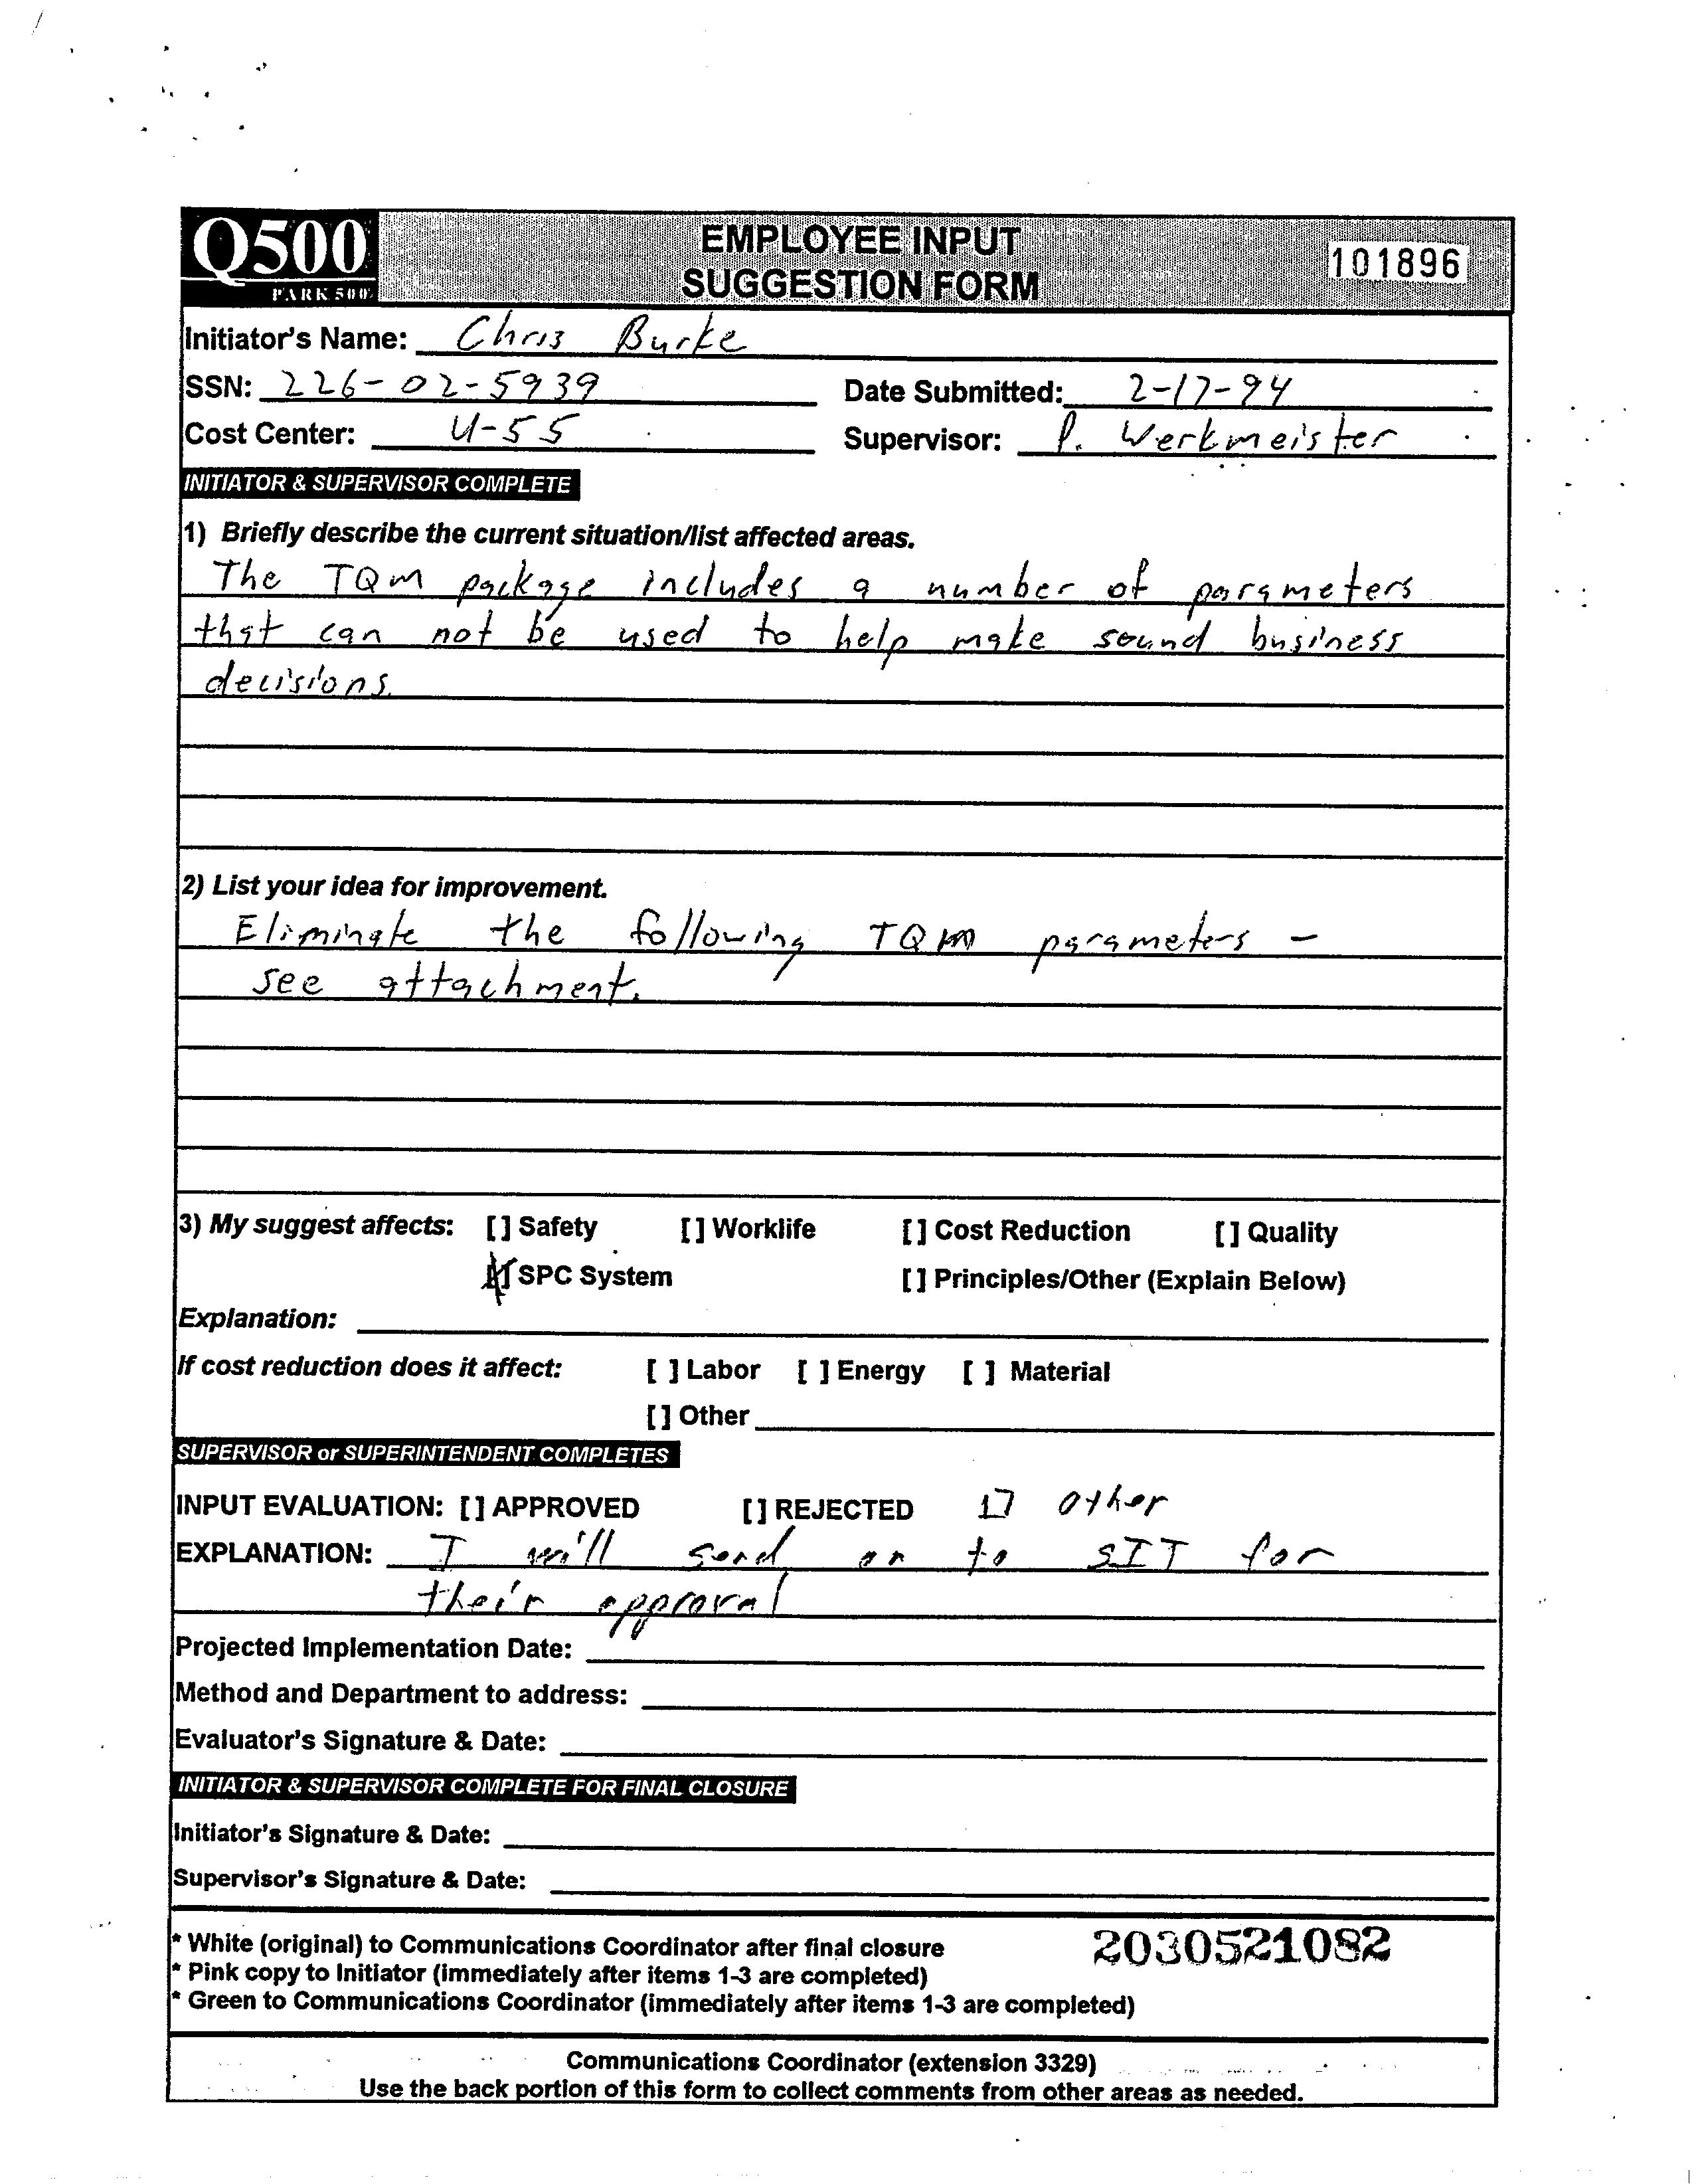 Q500
PARK 500
EMPLOYEE INPUT
SUGGESTION FORM
101896
Initiator's Name: Chris Burke
SSN: 226-02-5939 Date Submitted: 2-17-94
Cost Center: U-55 Supervisor: P. Werkmeister
INITIATOR & SUPERVISOR COMPLETE
1) Briefly describe the current situation/list affected areas.
The TQM package includes a number of parameters
that can not be used to help make sound business
decisions.
2) List your idea for improvement.
Eliminate the following TQM parameters -
see attachment.
3) My suggest affects: [ ] Safety [ ] Worklife [ ] Cost Reduction [ ] Quality
[X] SPC System [ ] Principles/Other (Explain Below)
Explanation:
If cost reduction does it affect: [ ] Labor [ ] Energy [ ] Material
[ ] Other
SUPERVISOR or SUPERINTENDENT COMPLETES
INPUT EVALUATION: [ ] APPROVED [ ] REJECTED [ ] Other
EXPLANATION: I will send on to SIT for
their approval
Projected Implementation Date:
Method and Department to address:
Evaluator's Signature & Date:
INITIATOR & SUPERVISOR COMPLETE FOR FINAL CLOSURE
Initiator's Signature & Date:
Supervisor's Signature & Date:
* White (original) to Communications Coordinator after final closure
* Pink copy to Initiator (immediately after items 1-3 are completed)
* Green to Communications Coordinator (immediately after items 1-3 are completed)
2030521082
Communications Coordinator (extension 3329)
Use the back portion of this form to collect comments from other areas as needed.